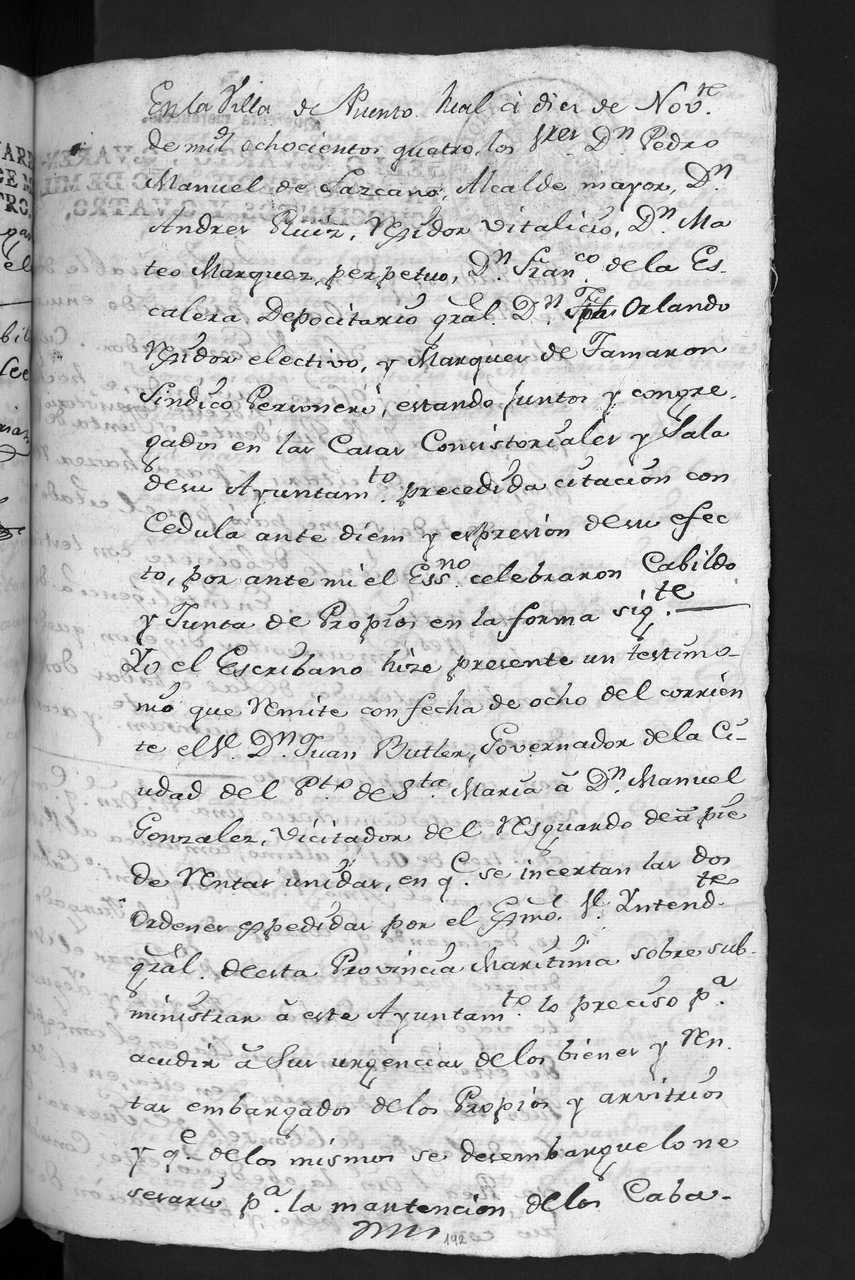 En la Villa de Puerto Real á diez de Nov.re
de mil ochocientos quatro, los Sres. Dn Pedro
Manuel de Lazcano, Alcalde mayor, Dn
Andres Ruiz, Rejidor vitalicio, Dn. Ma
teo Marquez, perpetuo, Dn. Franco. de la Es-
calera Depocitario gral. Dn Orlando
Rejidor electivo, y Marques de Tamaron
Sindico Personero, estando juntos y congre-
gados en las Casas Consistoriales y Sala
de su Ayuntamto. precedida citacion con
Cedula ante diem y espresion de su efec
to, por ante mi el Essno. celebraron Cabildo
y Junta de Propios en la forma sigte.
Yo el Escribano hize presente un testimo-
nio que remite con fecha de ocho del corrien
te el Sr. Dn Juan Butler, Governador de la Ciu-
udad del Pto. de Sta. Maria á Dn. Manuel
Gonzalez, vicitador del Resguardo de á pie
de Rentas unidas, en qe. se incertan las dos
Ordenes expedidas por el Exmo. Sr. Yntendte
gral. de esta Provincia Maritima sobre sub-
ministrar á este Ayuntamto. lo preciso pa.
acudir á sus urgencias de los bienes y Ren-
tas embargados de los Propios y arvitrios
y qe. de los mismos se desembargue lo ne
sesario pa. la mantencion de los Caba-
192